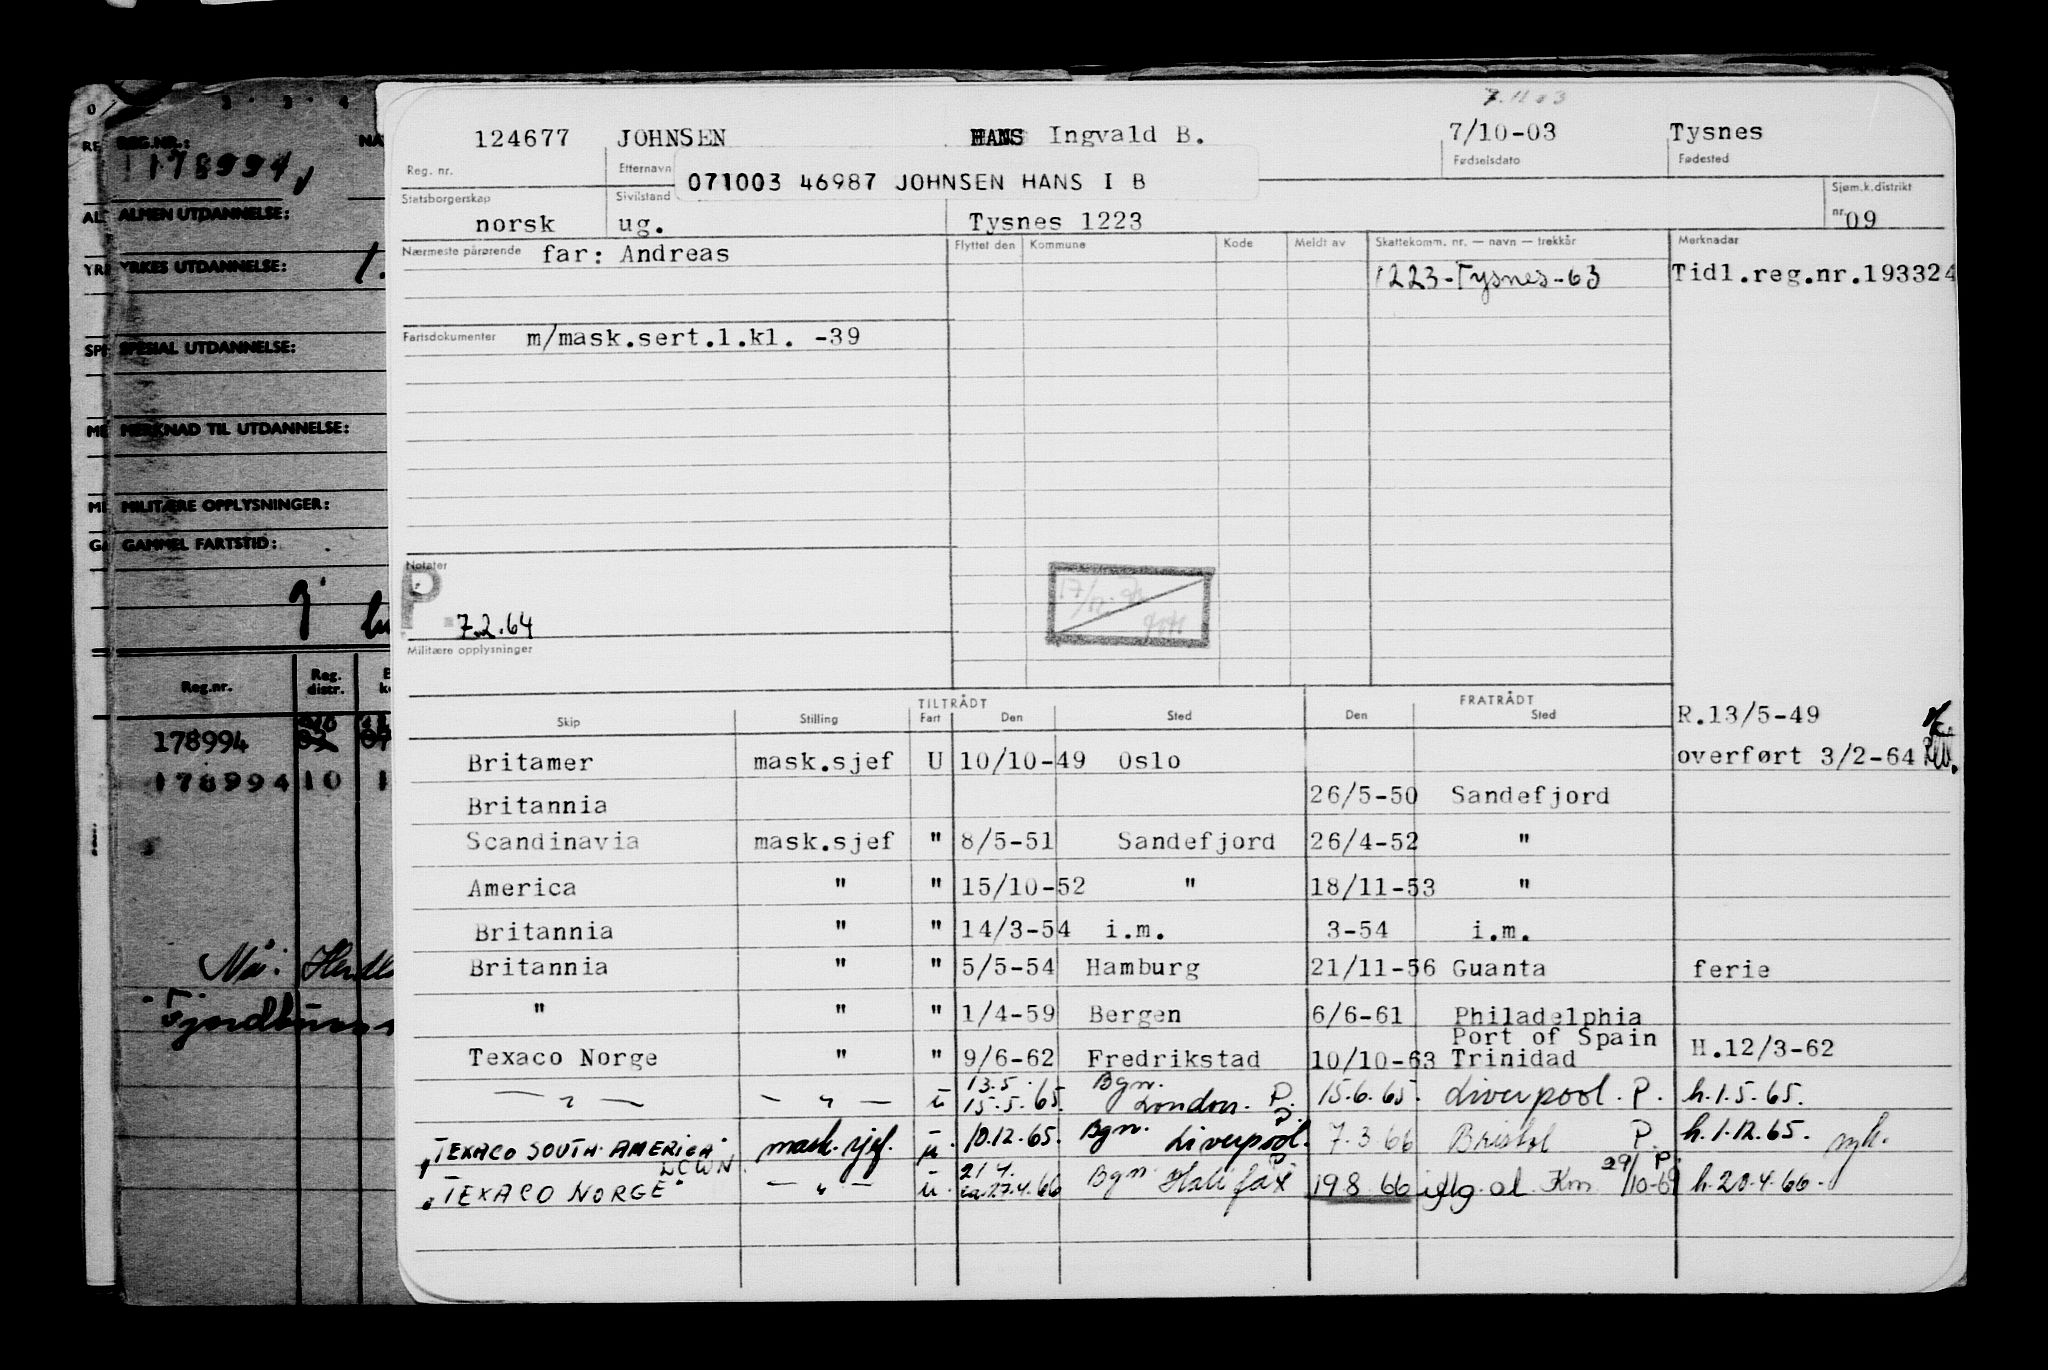 7.11.03
124677 JOHNSEN HANS Ingvald B. 7/10-03 Tysnes
Reg. nr. Etternavn Fødselsdato Fødested
071003 46987 JOHNSEN HANS I B
Statsborgerskap Sivilstand Sjøm.k.distrikt
norsk ug. Tysnes 1223 nr. 09
Nærmeste pårørende far: Andreas Flyttet den Kommune Kode Meldt av Skattekomm. nr. — navn — trekkår Merknader
1223-Tysnes-63 Tidl.reg.nr.193324
Fartsdokumenter m/mask.sert.1.kl. -39
Notater
P
7.2.64
Militære opplysninger
TILTRÅDT FRATRÅDT
Skip Stilling Fart Den Sted Den Sted R.13/5-49
Britamer mask.sjef U 10/10-49 Oslo overført 3/2-64
Britannia 26/5-50 Sandefjord
Scandinavia mask.sjef " 8/5-51 Sandefjord 26/4-52 "
America " " 15/10-52 " 18/11-53 "
Britannia " " 14/3-54 i.m. 3-54 i.m.
Britannia " " 5/5-54 Hamburg 21/11-56 Guanta ferie
" " " 1/4-59 Bergen 6/6-61 Philadelphia
Port of Spain
Texaco Norge " " 9/6-62 Fredrikstad 10/10-63 Trinidad H.12/3-62
13.5. Bgn.
— " — — " — u 15.5.65. London. P. 15.6.65. Liverpool. P. h.1.5.65.
"TEXACO SOUTH AMERICA" mask.sjef. u. 10.12.65. Bgn. Liverpool. P. 7.3.66 Bristol P. h.1.12.65. syk.
LCWN.
21.4. 29/ P.
"TEXACO NORGE" — " — u. ca 27.4.66 Bgn. Halifax P 19.8.66 iflg. al. Km /10-69 h.20.4.66.
REG.NR.:
178994
ALMEN UTDANNELSE:
YRKES UTDANNELSE:
SPESIAL UTDANNELSE:
MERKNAD TIL UTDANNELSE:
MILITÆRE OPPLYSNINGER:
GAMMEL FARTSTID:
Reg.nr. Reg. distr.
178994
178994 10 1
Nå: